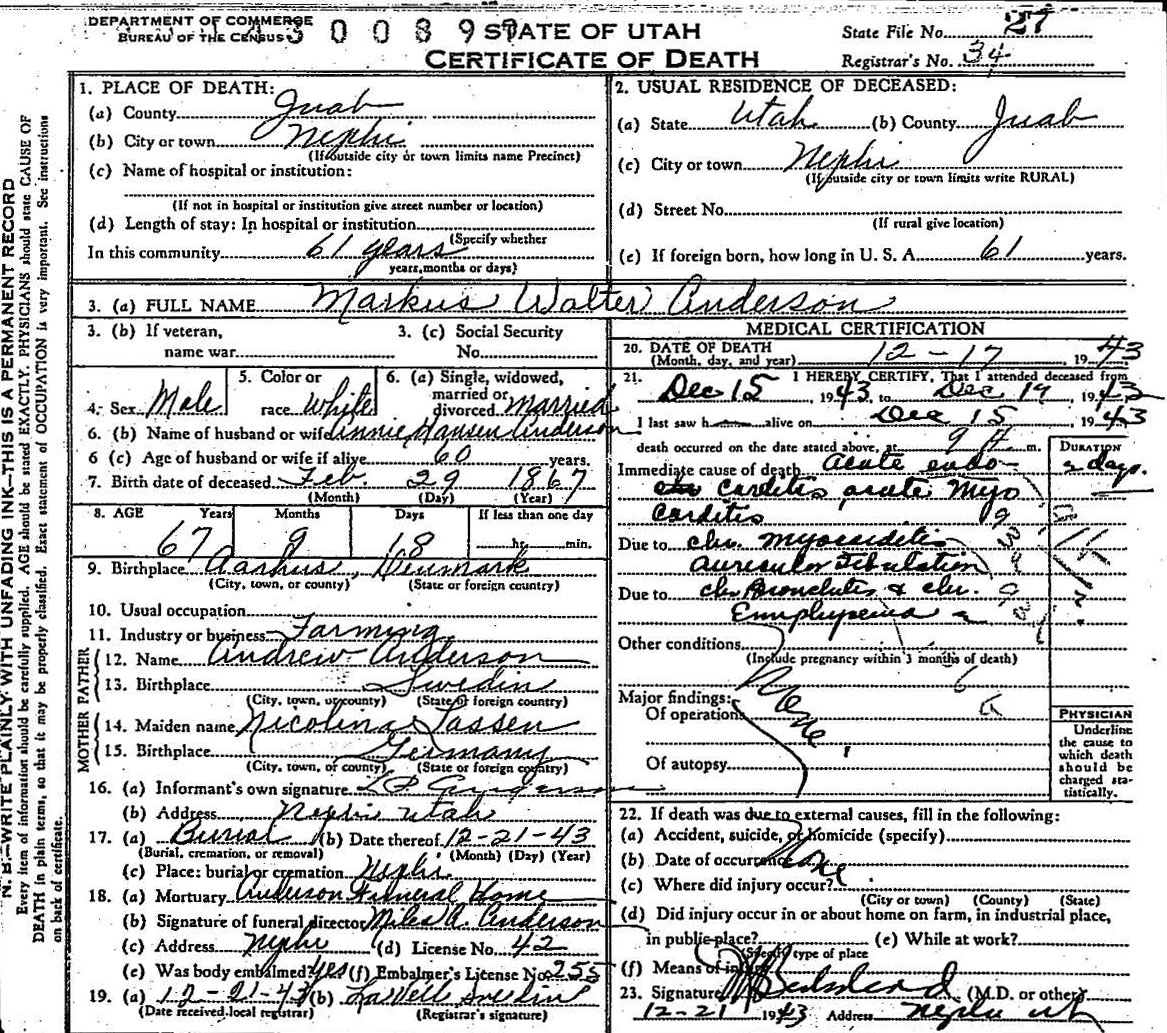 DEPARTMENT OF COMMERCE
BUREAU OF THE CENSUS
STATE OF UTAH
CERTIFICATE OF DEATH
State File No. 27
Registrar's No. 34
N. B.—WRITE PLAINLY, WITH UNFADING INK—THIS IS A PERMANENT RECORD
Every item of information should be carefully supplied. AGE should be stated EXACTLY. PHYSICIANS should state CAUSE OF
DEATH in plain terms, so that it may be properly classified. Exact statement of OCCUPATION is very important. See instructions
on back of certificate.
1. PLACE OF DEATH:
(a) County Juab
(b) City or town Nephi
(If outside city or town limits name Precinct)
(c) Name of hospital or institution:
(If not in hospital or institution give street number or location)
(d) Length of stay: In hospital or institution
(Specify whether
In this community 61 years
years, months or days)
2. USUAL RESIDENCE OF DECEASED:
(a) State Utah (b) County Juab
(c) City or town Nephi
(If outside city or town limits write RURAL)
(d) Street No.
(If rural give location)
(e) If foreign born, how long in U. S. A. 61 years.
3. (a) FULL NAME Markus Walter Anderson
3. (b) If veteran,
name war
3. (c) Social Security
No.
4. Sex Male
5. Color or
race White
6. (a) Single, widowed,
married or
divorced married
6. (b) Name of husband or wife Annie Hansen Anderson
6 (c) Age of husband or wife if alive 60 years.
7. Birth date of deceased Feb. 29 1867
(Month) (Day) (Year)
8. AGE Years Months Days If less than one day
67 9 18 hr. min.
9. Birthplace Aarhus, Denmark
(City, town, or county) (State or foreign country)
10. Usual occupation
11. Industry or business Farming
FATHER
12. Name Andrew Anderson
13. Birthplace Swedin
(City, town, or county) (State or foreign country)
MOTHER
14. Maiden name Nicolina Lassen
15. Birthplace Germany
(City, town, or county) (State or foreign country)
16. (a) Informant's own signature
(b) Address Nephi Utah
17. (a) Burial (b) Date thereof 12-21-43
(Burial, cremation, or removal) (Month) (Day) (Year)
(c) Place: burial or cremation Nephi.
18. (a) Mortuary Anderson Funeral Home
(b) Signature of funeral director Miles A. Anderson
(c) Address Nephi (d) License No. 42
(e) Was body embalmed? Yes (f) Embalmer's License No. 255
19. (a) 12-21-43 (b)
(Date received local registrar) (Registrar's signature)
MEDICAL CERTIFICATION
20. DATE OF DEATH
(Month, day, and year) 12-17 1943
21. I HEREBY CERTIFY, That I attended deceased from
Dec 15, 1943, to Dec 17, 1943
I last saw h alive on Dec 15, 1943
death occurred on the date stated above, at 9 A m.
DURATION
Immediate cause of death acute endo 2 days.
carditis acute Myo
carditis
Due to chr. myocarditis
auricular fibulation
Due to chr Bronchitis & chr.
Emphysema
Other conditions
(Include pregnancy within 3 months of death)
None
Major findings:
Of operations
Of autopsy
PHYSICIAN
Underline
the cause to
which death
should be
charged sta-
tistically.
22. If death was due to external causes, fill in the following:
(a) Accident, suicide, or homicide (specify)
(b) Date of occurrence None
(c) Where did injury occur?
(City or town) (County) (State)
(d) Did injury occur in or about home on farm, in industrial place,
in public place? (e) While at work?
(Specify type of place
(f) Means of injury
23. Signature (M.D. or other)
12-21 1943 Address Nephi Ut